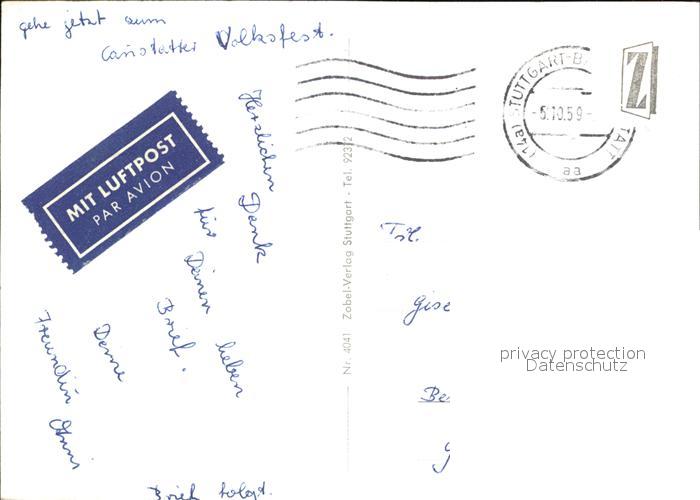 gehe jetzt zum
Cannstatter Volksfest.
MIT LUFTPOST
PAR AVION
Herzlichen Dank
für Deinen lieben
Brief.
Deine
Freundin Anni
Brief folgt.
Nr. 4041 Zobel-Verlag Stuttgart - Tel. 92372
(14a) STUTTGART-B TATT
-5.10.59-
aa
Z
Frl.
Gise
Be
privacy protection
Datenschutz